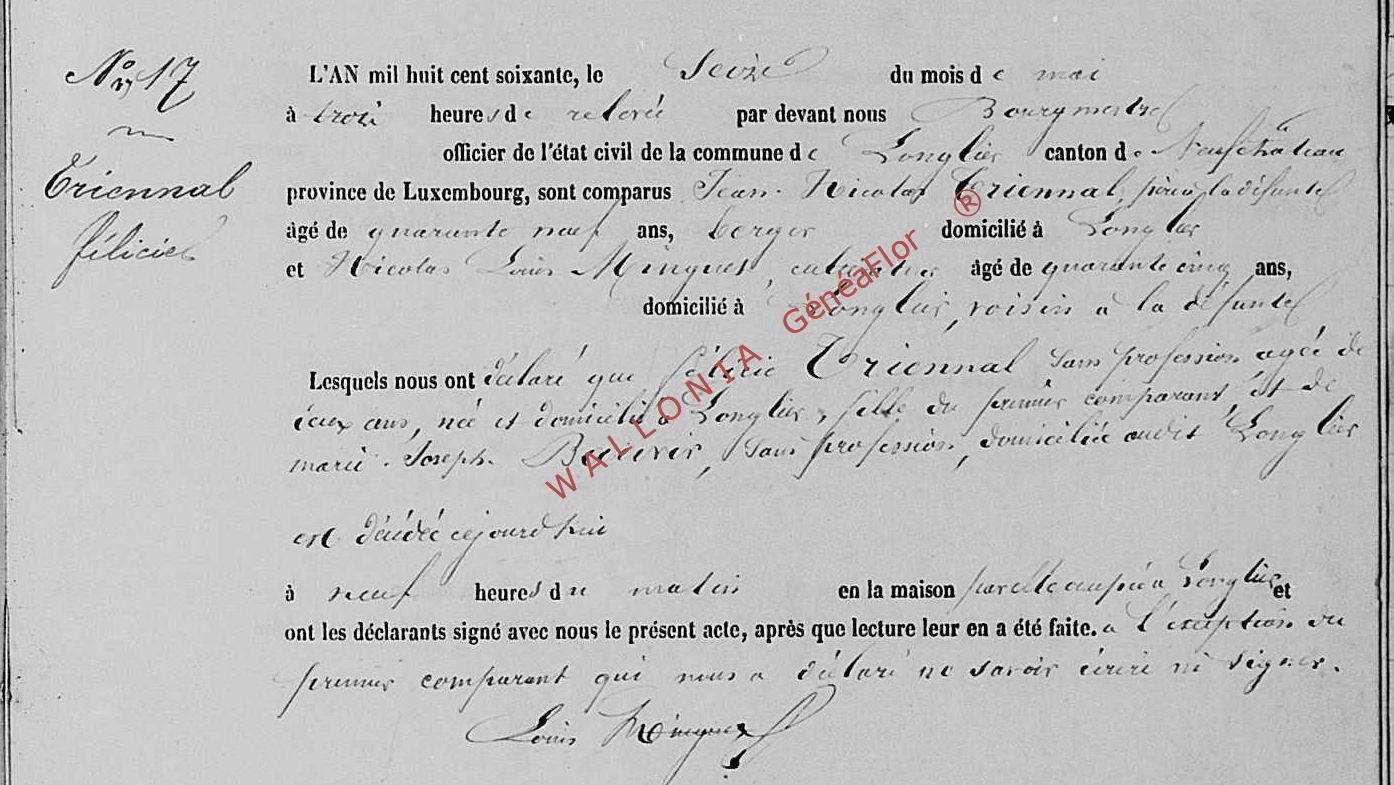 N° 17
Triennal
félicie
L'AN mil huit cent soixante, le Seize du mois de mai
à trois heures de relevée par devant nous Bourgmestre
officier de l'état civil de la commune de Longlier canton de Neufchâteau
province de Luxembourg, sont comparus Jean Nicolas Triennal, père à la défunte
âgé de quarante neuf ans, berger domicilié à Longlier
et Nicolas Louis cultivateur âgé de quarante cinq ans,
domicilié à Longlier, voisin à la défunte
Lesquels nous ont déclaré que félicie Triennal sans profession agée de
deux ans, née et domiciliée à Longlier, fille du premier comparant, et de
marie Joseph sans profession, domiciliée audit Longlier
est décédée cejourd'hui
à neuf heures du matin en la maison par elle occupée à Longlier et
ont les déclarants signé avec nous le présent acte, après que lecture leur en a été faite. à l'exception du
premier comparant qui nous a déclaré ne savoir écrire ni signer.
Louis
WALLONIA GénéaFlor ®